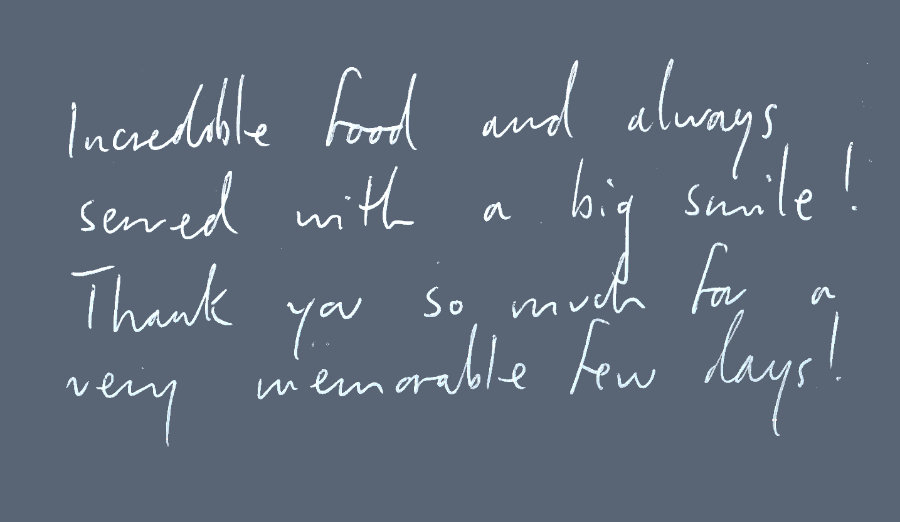 Incredible food and always
served with a big smile!
Thank you so much for a
very memorable few days!